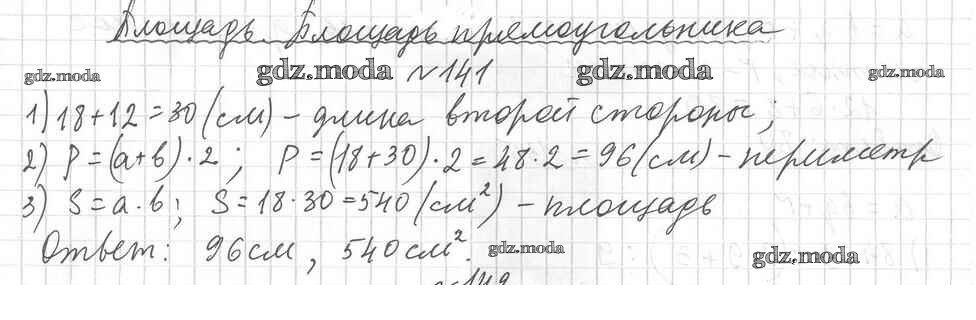 Площадь. Площадь прямоугольника
gdz.moda gdz.moda №141 gdz.moda gdz.moda
1) 18+12=30 (см) – длина второй стороны;
2) P=(a+b)·2; P=(18+30)·2=48·2=96(см) – периметр
3) S=a·b; S=18·30=540 (см²) – площадь
Ответ: 96см, 540см². gdz.moda gdz.moda